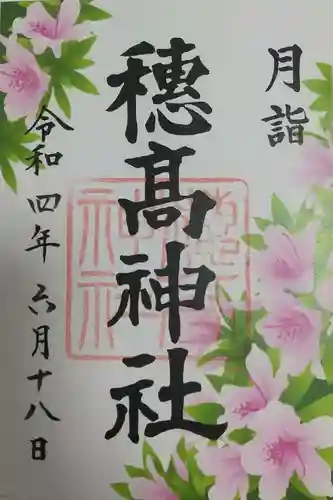 月詣
穂髙神社
令和四年六月十八日